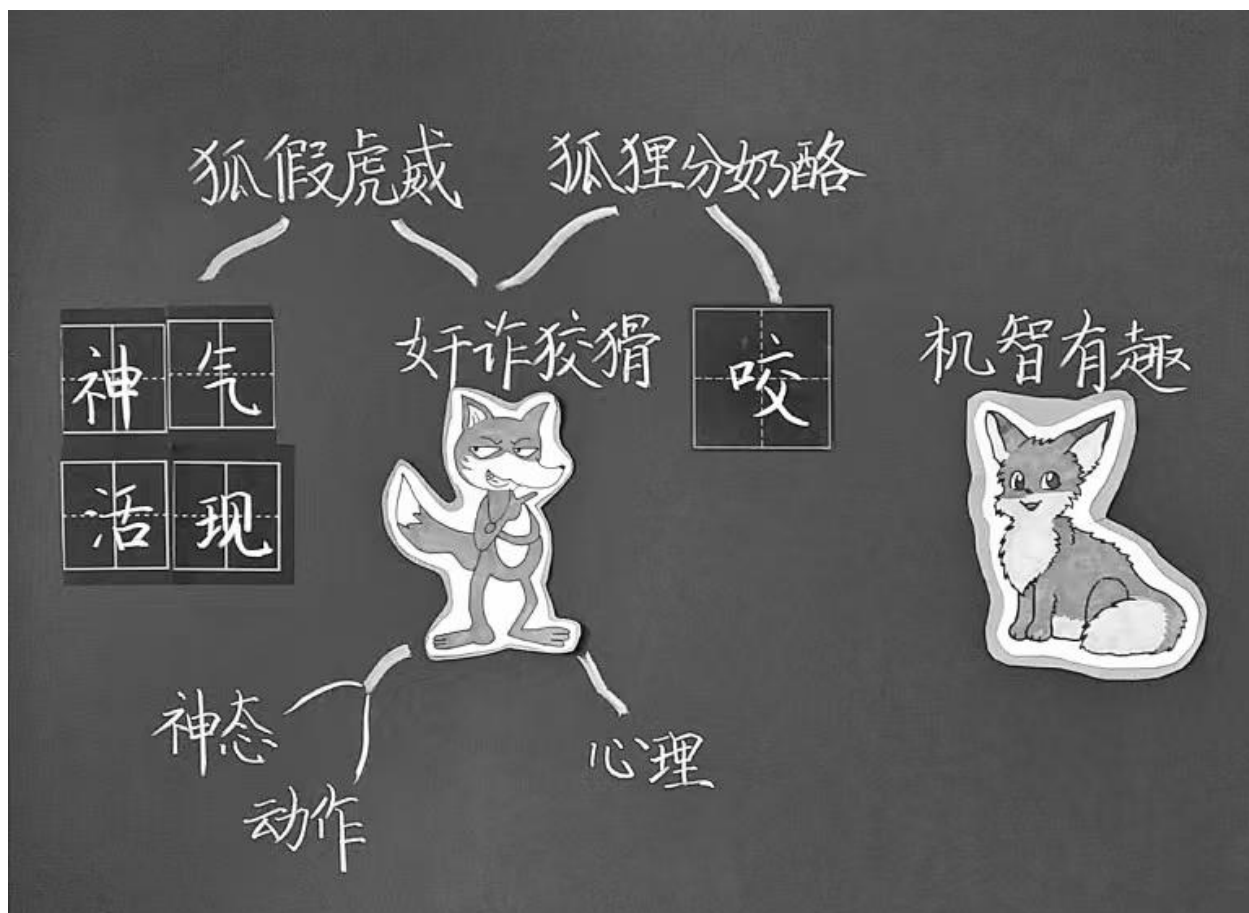 狐假虎威
狐狸分奶酪
神气
活现
奸诈狡猾
咬
机智有趣
神态
动作
心理